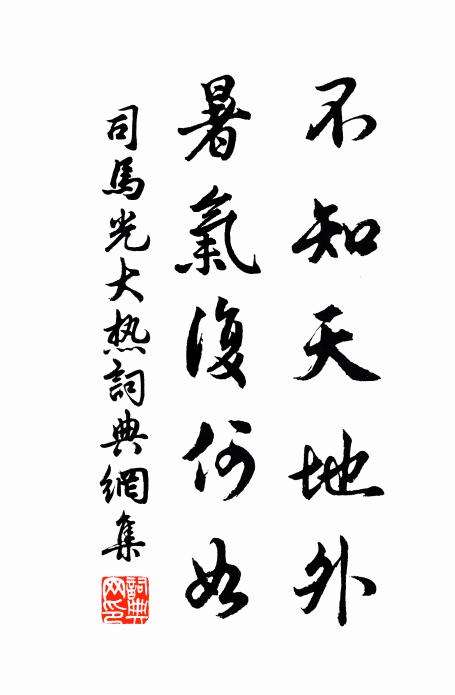 不知天地外
暑氣復何如
司馬光大热詞典網集
詞典網印